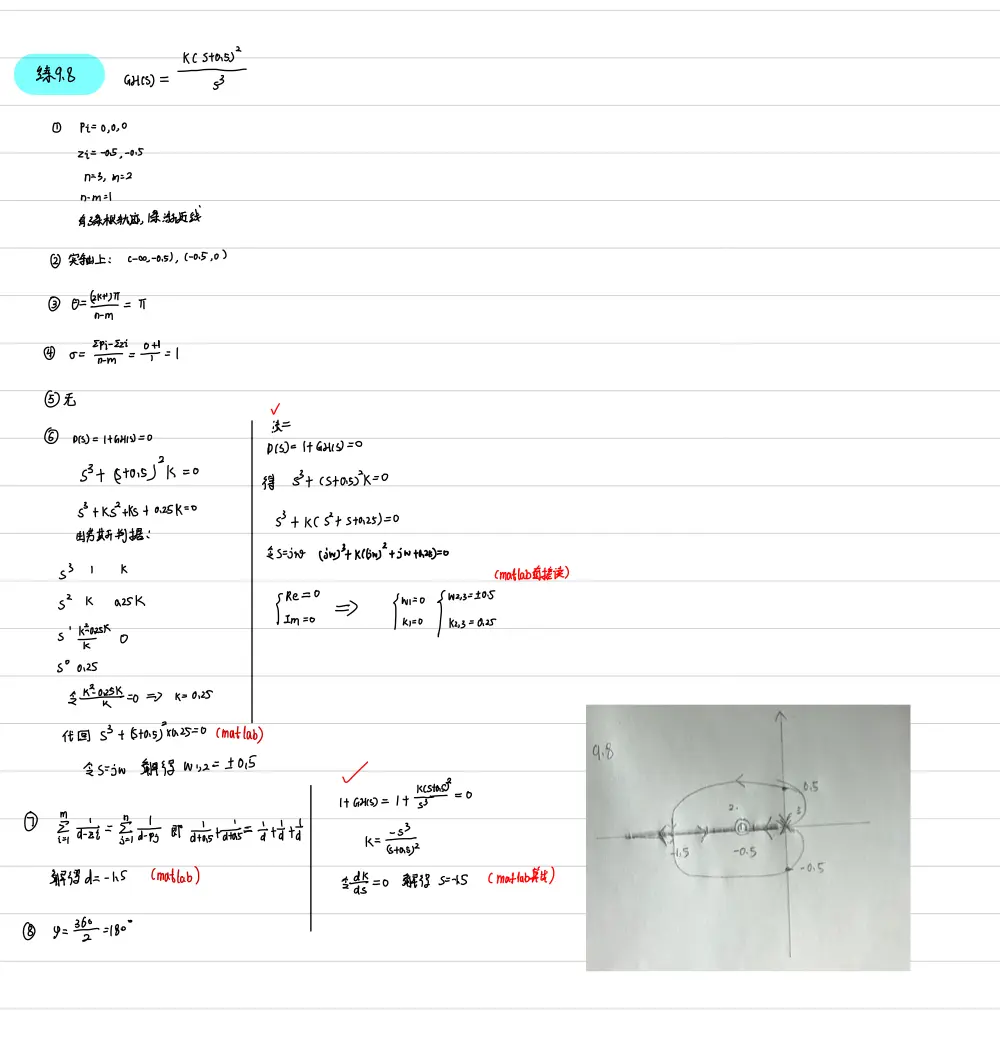 练9.8
GH(s) = K(s+0.5)² / s³
① Pi = 0, 0, 0
Zi = -0.5, -0.5
n=3, m=2
n-m=1
② 实轴上: (-∞, -0.5), (-0.5, 0)
③ θ = (2K+1)π / n-m = π
④ σ = ΣPi-Σzi / n-m = 0+1 / 1 = 1
⑤ 无
⑥ D(s) = 1+GH(s) = 0
s³ + (s+0.5)²K = 0
s³ + Ks² + Ks + 0.25K = 0
由劳斯判据:
s³ 1 K
s² K 0.25K
s¹ K²-0.25K / K 0
s⁰ 0.25
令 K²-0.25K / K = 0 => K = 0.25
代回 s³ + (s+0.5)²×0.25 = 0 (matlab)
令 s=jw 解得 w1,2 = ±0.5
✓
法二
D(s) = 1+GH(s) = 0
得 s³ + (s+0.5)²K = 0
s³ + K(s² + s + 0.25) = 0
令 s=jw (jw)³ + K((jw)² + jw + 0.25) = 0
(matlab
{ Re = 0 Im = 0 => { w1 = 0 k1 = 0 { w2,3 = ±0.5 k2,3 = 0.25
⑦ Σ(i=1→m) 1/(d-zi) = Σ(j=1→n) 1/(d-pj) 即 1/(d+0.5) + 1/(d+0.5) = 1/d + 1/d + 1/d
解得 d = -1.5 (matlab)
✓
1+GH(s) = 1 + K(s+0.5)² / s³ = 0
K = -s³ / (s+0.5)²
令 dK/ds = 0 解得 s = -1.5 (matlab算法)
⑧ φ = 360 / 2 = 180°
9.8
0.5
2.
3
-1.5
-0.5
-0.5